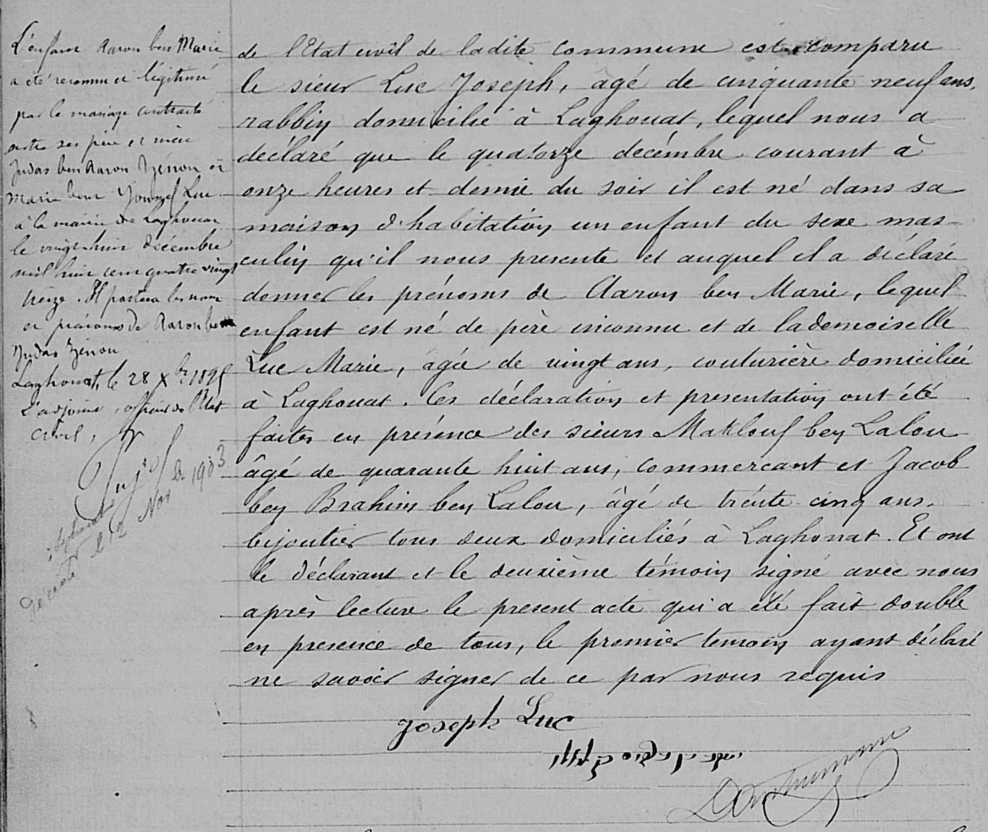 L'enfant Aaron ben Marie
a été reconnu et légitimé
par le mariage contracté
entre ses père et mère
Judas ben Aaron Zénou et
Marie bent Youssef Luc
à la mairie de Laghouat
le vingt huit décembre
mil huit cent quatre vingt
treize. Il portera les nom
et prénoms de Aaron ben
Judas Zénou
Laghouat, le 28 Xbre
L'adjoint, officier de l'Etat
Civil,
Nov 1933
de l'Etat civil de ladite commune est comparu
le sieur Luc Joseph, âgé de cinquante neuf ans,
rabbin domicilié à Laghouat, lequel nous a
déclaré que le quatorze décembre courant à
onze heures et demie du soir il est né dans sa
maison d'habitation un enfant du sexe mas-
culin qu'il nous presente et auquel il a déclaré
donner les prénoms de Aaron ben Marie, lequel
enfant est né de père inconnu et de lademoiselle
Luc Marie, agée de vingt ans, couturière domiciliée
à Laghouat. Ces déclaration et presentation ont été
faites en présence des sieurs Maklouf ben Lalou
âgé de quarante huit ans, commercant et Jacob
ben Brahim ben Lalou, âgé de trente cinq ans.
bijoutier tous deux domiciliés à Laghouat. Et ont
le déclarant et le deuxième témoin signé avec nous
après lecture le present acte qui a été fait double
en presence de tous, le premier temoin ayant déclaré
ne savoir signer de ce par nous requis
Joseph Luc